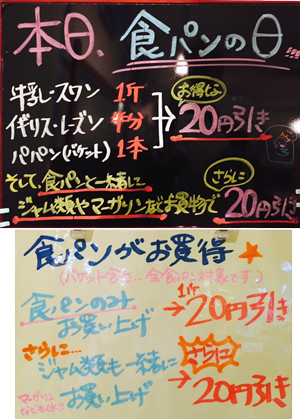 本日、食パンの日!!!
牛乳・スワン 1斤
イギリス・レーズン 半分
パパン(バケット) 1本
お得な
20円引き
そして、食パンと一緒に
ジャム類やマーガリンなどお買物で
さらに
20円引き
食パンがお買得
(バケット含む…全食パン対象です)
食パンのみ
お買い上げ
1斤
→20円引き
さらに…
ジャム類も一緒に
お買い上げ
マーガリン
などもOK!!
さらに
→20円引き